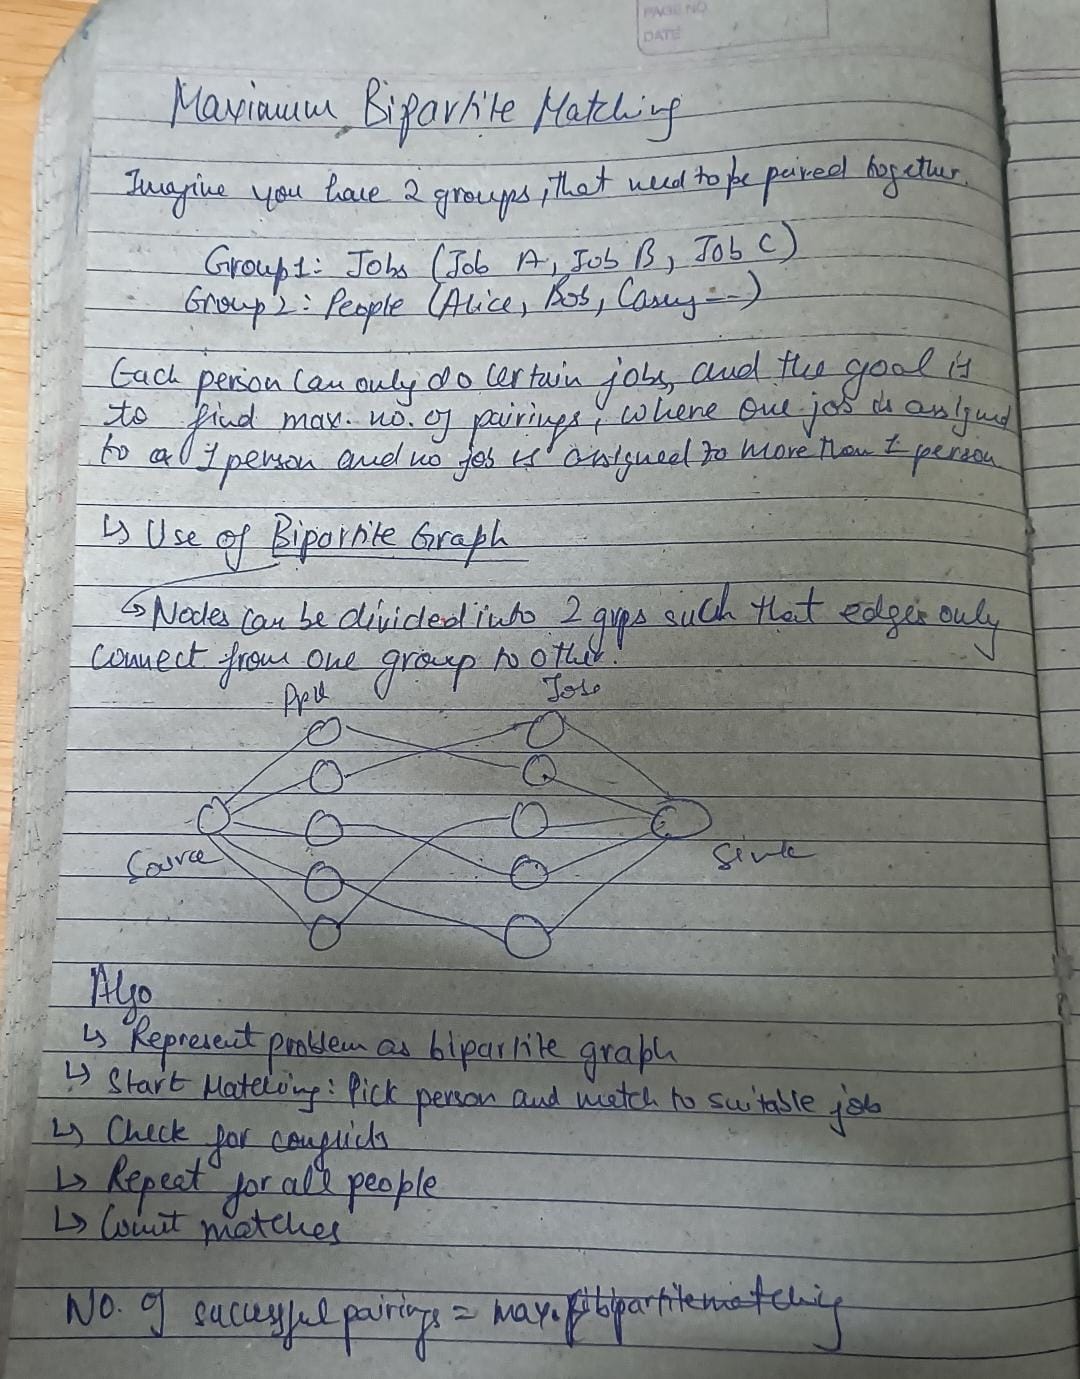 PAGE NO
DATE
Maximum Bipartite Matching
Imagine you have 2 groups, that need to be paired together.
Group 1: Jobs (Job A, Job B, Job C)
Group 2: People (Alice, Bob, Casey --)
Each person can only do certain jobs, and the goal is
to find max. no. of pairings, where one job is assigned
to a 1 person and no job is assigned to more than 1 person
↳ Use of Bipartite Graph
↳ Nodes can be divided into 2 grps such that edges only
connect from one group to other.
Ppl Jobs
Source Sink
Algo
↳ Represent problem as bipartite graph
↳ Start Matching: Pick person and match to suitable job
↳ Check for conflicts
↳ Repeat for all people
↳ Count matches
No. of successful pairings = max. bipartite matching